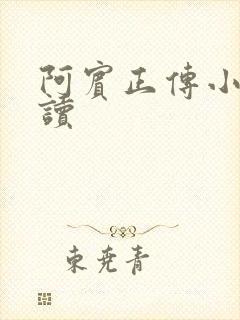 阿賓正傳小
讀
東尭青